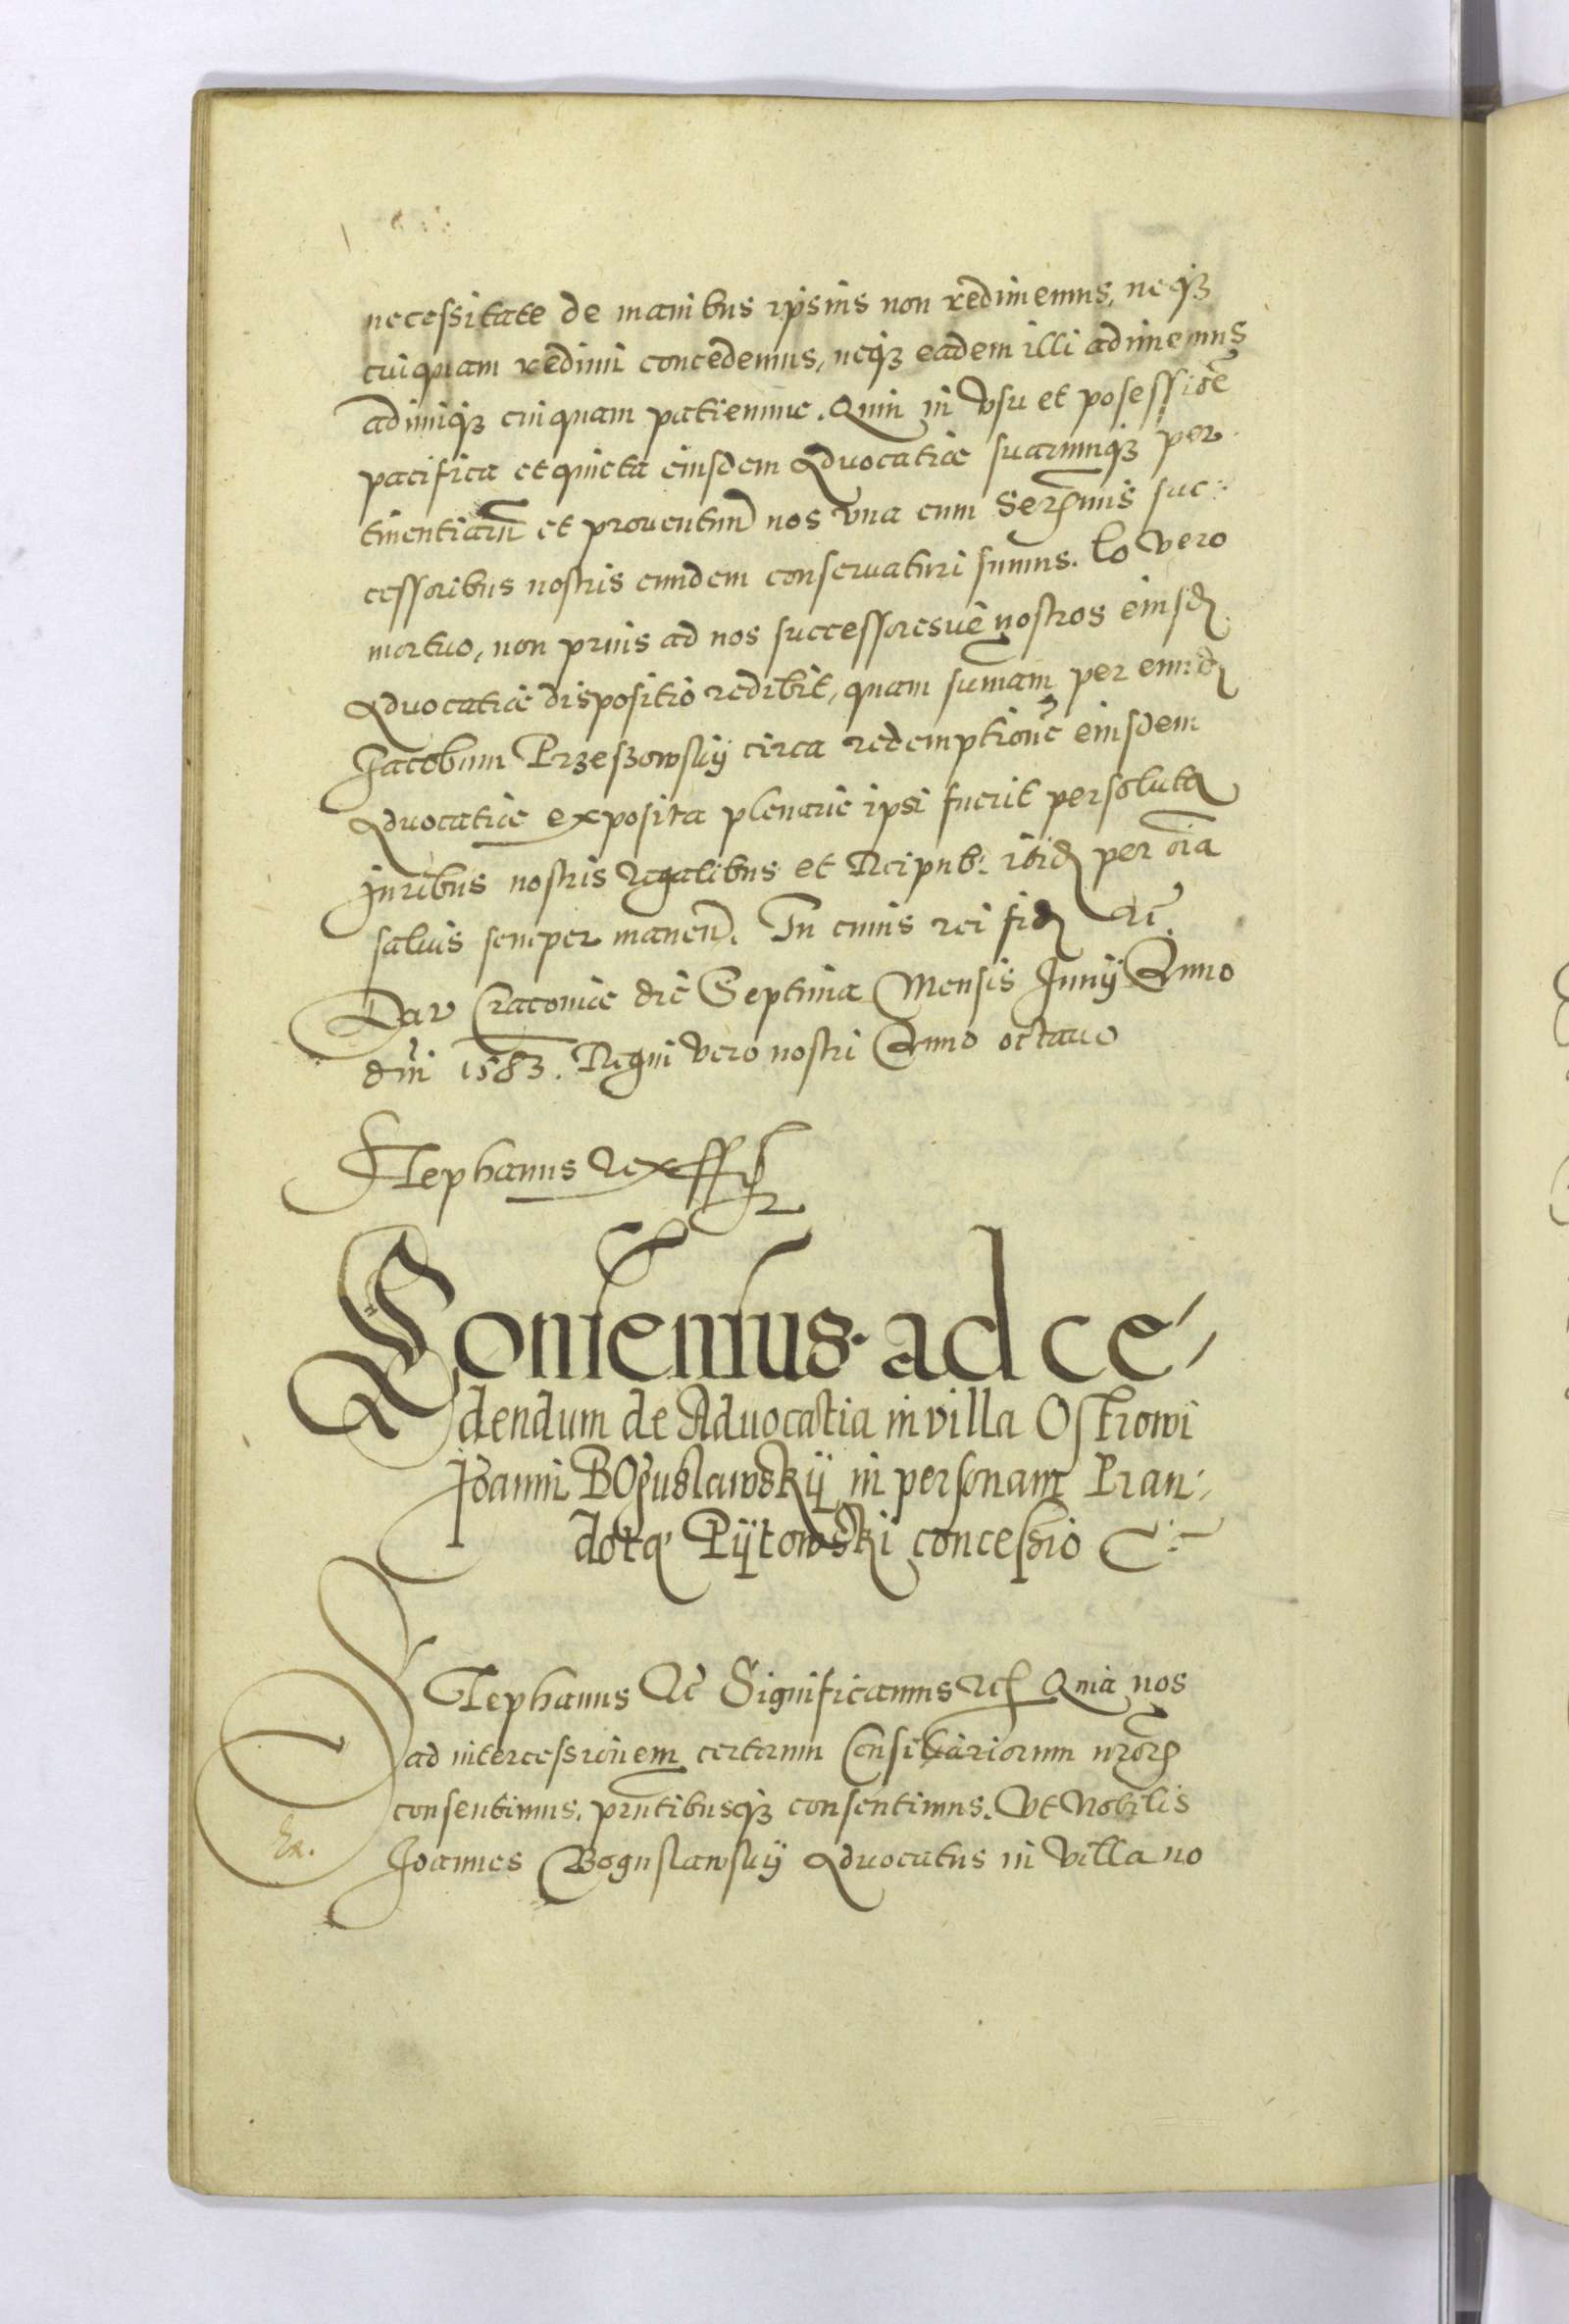 necessitate de manibus ipsius non redimemus, neqȝ
cuiquam redimi concedemus, neqȝ eadem illi adimemus
adimiqȝ cuiquam patiemur. Quin in vsu et posessioē
pacifica et quieta eiusdem Aduocatiæ suarumqȝ per
tinentiarū et prouentuum nos vna cum Serᵐis suc:
cessoribus nostris eundem conseruaturi sumus. Eo vero
mortuo, non prius ad nos successoresuè nostros eiusd
Aduocatiæ dispositio redibit, quam sum̄am per eund
Jacobum Przeszowsky circa redemptionē eiusdem
Aduocatiæ exposita plenarie ipsi fuerit persoluta
Juribus nostris Regalibus et Reipub: ibid per oīa
saluis semper manen. In cuius rei fid &c̄.
Dat Cracouiæ die Septima Mensis Junÿ Anno
dn̄i 1583. Regni vero nostri Anno octauo
Stephanus Rex ss
Consensus ad ce-
dendum de Aduocatia in villa Ostrowi
Joanni Boguslawskÿ in personam Pran-
dotæ Pÿtowski concessio
Stephanus &c̄ Significamus &c Quia nos
ad intercessionem certorum Consiliariorum nr̄or
consentimus, prn̄tibusqȝ consentimus. Vt Nobilis
Ex.
Joannes Boguslawskÿ Aduocatus in villa no